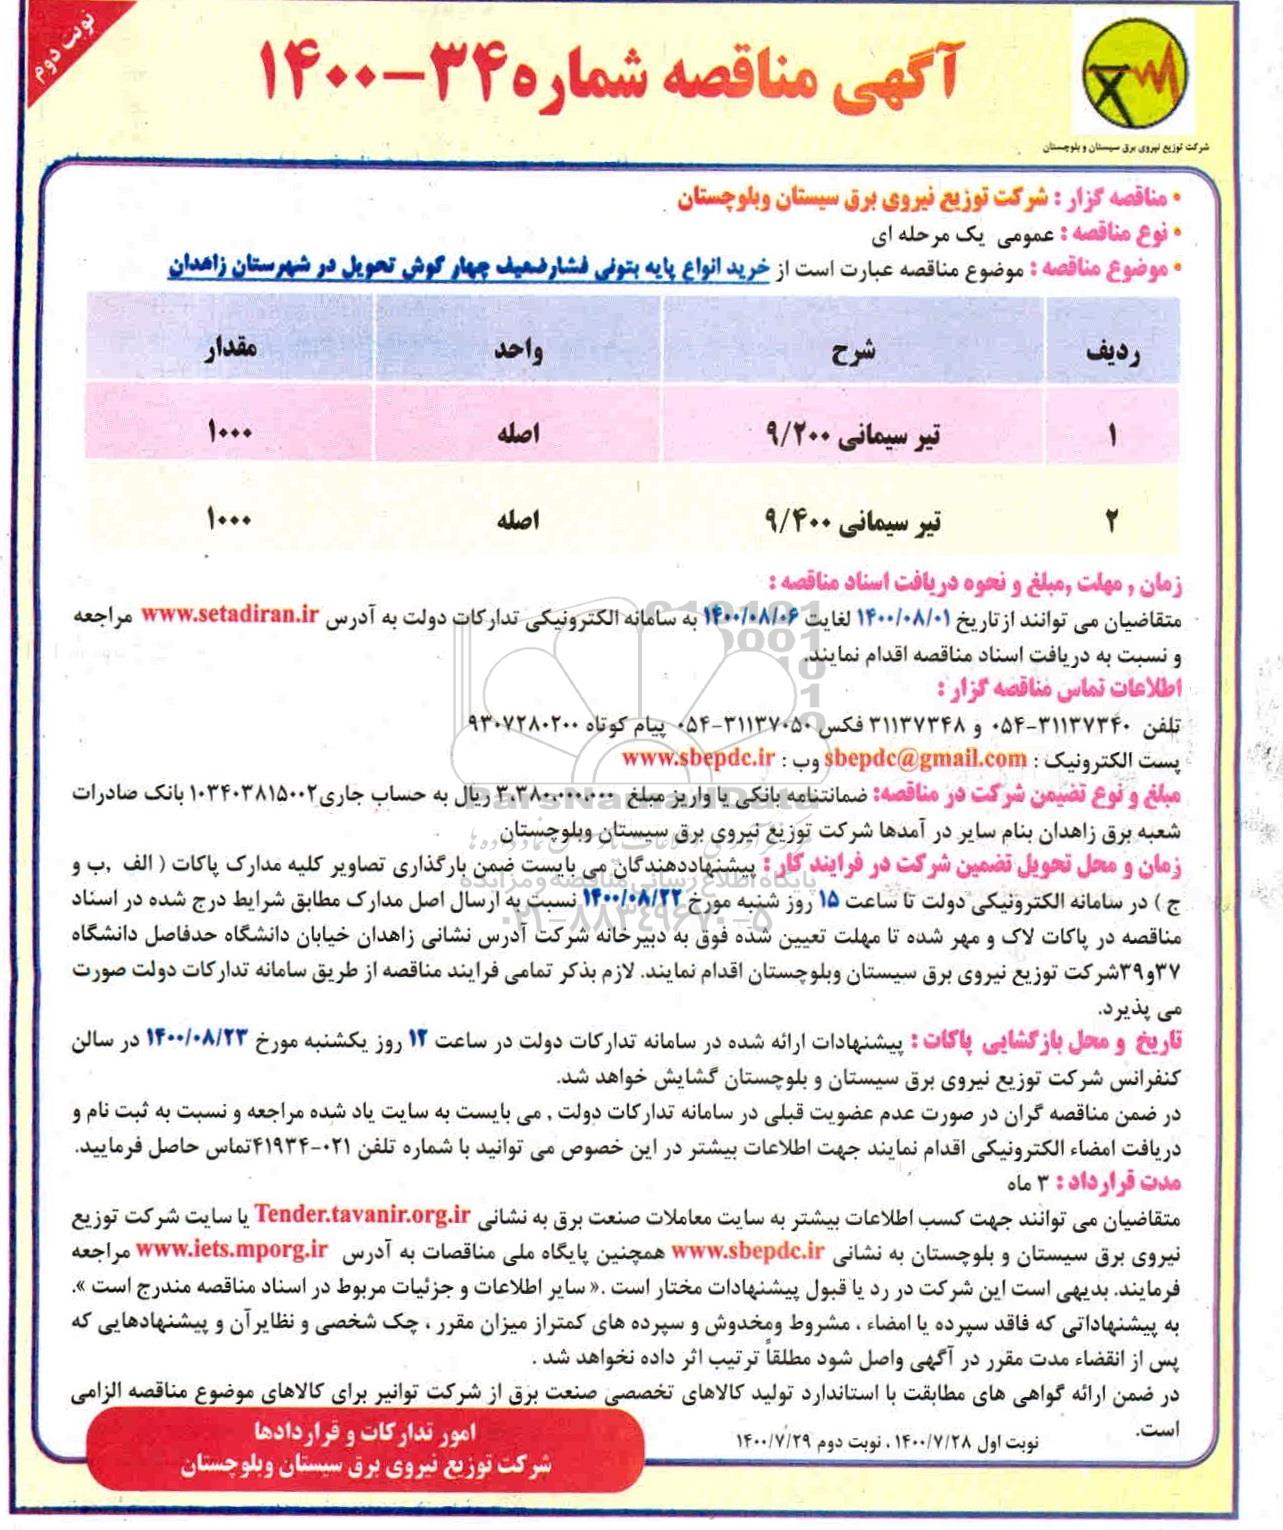 نوبت دوم
آگهی مناقصه شماره ۳۴-۱۴۰۰
شرکت توزیع نیروی برق سیستان و بلوچستان
• مناقصه گزار : شرکت توزیع نیروی برق سیستان وبلوچستان
• نوع مناقصه : عمومی یک مرحله ای
• موضوع مناقصه : موضوع مناقصه عبارت است از خرید انواع پایه بتونی فشارضعیف چهار گوش تحویل در شهرستان زاهدان
ردیف شرح واحد مقدار
۱ تیر سیمانی ۹/۲۰۰ اصله ۱۰۰۰
۲ تیر سیمانی ۹/۴۰۰ اصله ۱۰۰۰
زمان , مهلت ,مبلغ و نحوه دریافت اسناد مناقصه :
متقاضیان می توانند از تاریخ ۱۴۰۰/۰۸/۰۱ لغایت ۱۴۰۰/۰۸/۰۶ به سامانه الکترونیکی تدارکات دولت به آدرس www.setadiran.ir مراجعه
و نسبت به دریافت اسناد مناقصه اقدام نمایند.
اطلاعات تماس مناقصه گزار :
تلفن ۳۱۱۳۷۳۴۰-۰۵۴ و ۳۱۱۳۷۳۴۸ فکس ۳۱۱۳۷۰۵۰-۰۵۴ پیام کوتاه ۹۳۰۷۲۸۰۲۰۰
پست الکترونیک : sbepdc@gmail.com وب : www.sbepdc.ir
مبلغ و نوع تضیمن شرکت در مناقصه: ضمانتنامه بانکی یا واریز مبلغ ۳.۳۸۰.۰۰۰.۰۰۰ ریال به حساب جاری۱۰۳۴۰۳۸۱۵۰۰۲ بانک صادرات
شعبه برق زاهدان بنام سایر در آمدها شرکت توزیع نیروی برق سیستان وبلوچستان
زمان و محل تحویل تضمین شرکت در فرایند کار : پیشنهاددهندگان می بایست ضمن بارگذاری تصاویر کلیه مدارک پاکات ( الف ,ب و
ج ) در سامانه الکترونیکی دولت تا ساعت ۱۵ روز شنبه مورخ ۱۴۰۰/۰۸/۲۲ نسبت به ارسال اصل مدارک مطابق شرایط درج شده در اسناد
مناقصه در پاکات لاک و مهر شده تا مهلت تعیین شده فوق به دبیرخانه شرکت آدرس نشانی زاهدان خیابان دانشگاه حدفاصل دانشگاه
۳۷و۳۹شرکت توزیع نیروی برق سیستان وبلوچستان اقدام نمایند. لازم بذکر تمامی فرایند مناقصه از طریق سامانه تدارکات دولت صورت
می پذیرد.
تاریخ و محل بازگشایی پاکات : پیشنهادات ارائه شده در سامانه تدارکات دولت در ساعت ۱۲ روز یکشنبه مورخ ۱۴۰۰/۰۸/۲۳ در سالن
کنفرانس شرکت توزیع نیروی برق سیستان و بلوچستان گشایش خواهد شد.
در ضمن مناقصه گران در صورت عدم عضویت قبلی در سامانه تدارکات دولت , می بایست به سایت یاد شده مراجعه و نسبت به ثبت نام و
دریافت امضاء الکترونیکی اقدام نمایند جهت اطلاعات بیشتر در این خصوص می توانید با شماره تلفن ۰۲۱-۴۱۹۳۴تماس حاصل فرمایید.
مدت قرارداد : ۳ ماه
متقاضیان می توانند جهت کسب اطلاعات بیشتر به سایت معاملات صنعت برق به نشانی Tender.tavanir.org.ir یا سایت شرکت توزیع
نیروی برق سیستان و بلوچستان به نشانی www.sbepdc.ir همچنین پایگاه ملی مناقصات به آدرس www.iets.mporg.ir مراجعه
فرمایند. بدیهی است این شرکت در رد یا قبول پیشنهادات مختار است .« سایر اطلاعات و جزئیات مربوط در اسناد مناقصه مندرج است ».
به پیشنهاداتی که فاقد سپرده یا امضاء ، مشروط ومخدوش و سپرده های کمتراز میزان مقرر ، چک شخصی و نظایر آن و پیشنهادهایی که
پس از انقضاء مدت مقرر در آگهی واصل شود مطلقاً ترتیب اثر داده نخواهد شد .
در ضمن ارائه گواهی های مطابقت با استاندارد تولید کالاهای تخصصی صنعت برق از شرکت توانیر برای کالاهای موضوع مناقصه الزامی
است.
نوبت اول ۱۴۰۰/۷/۲۸ ، نوبت دوم ۱۴۰۰/۷/۲۹
امور تدارکات و قراردادها
شرکت توزیع نیروی برق سیستان وبلوچستان
ParsNamadData
پایگاه اطلاع رسانی مناقصه و مزایده
۰۲۱-۸۸۳۴۹۶۷۰-۵